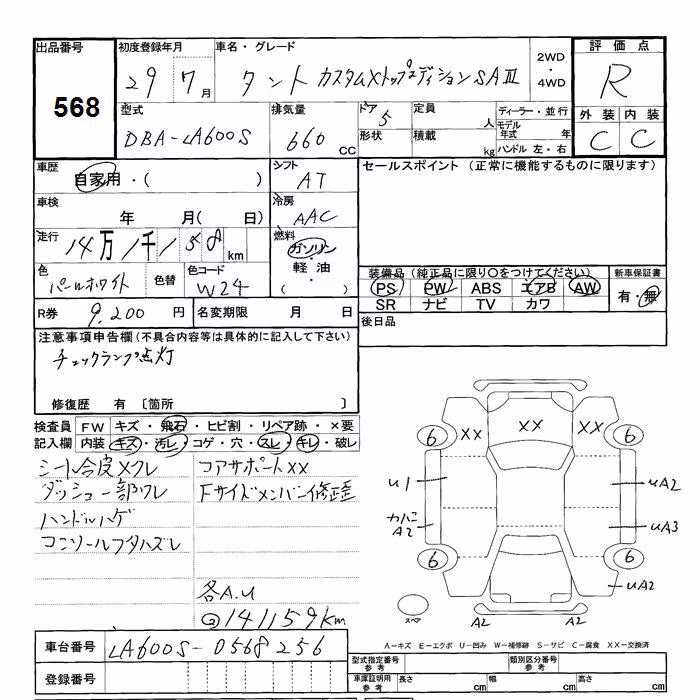 出品番号 初度登録年月 車名・グレード 2WD・4WD 評価点
568 29 7月 タント カスタムXトップエディションSAⅢ R
型式 排気量 ドア 定員 ディーラー・並行 外装 内装
DBA-LA600S 660 CC 5 人 モデル年式 年 C C
形状 積載 kg ハンドル 左・右
車歴 シフト セールスポイント (正常に機能するものに限ります)
自家用・( ) AT
車検 冷房
年 月( 日) AAC
走行 燃料
14万1千158km ガソリン・軽油・( )
色 色替 色コード 装備品 (純正品に限り○をつけてください) 新車保証書
パールホワイト W24 PS PW ABS エアB AW 有・無
SR ナビ TV カワ
R券 9,200円 名変期限 月 日 後日品
注意事項申告欄 (不具合内容等は具体的に記入して下さい)
チェックランプ点灯
修復歴 有 〔箇所 〕
検査員 FW キズ・飛石・ヒビ割・リペア跡・×要
記入欄 内装 キズ・汚レ・コゲ・穴・スレ・キレ・破レ
シート合皮メクレ コアサポートXX
ダッシュ一部ワレ Fサイドメンバー修正
ハンドルハゲ
コンソールフタハズレ
各A.U
@141159km
XX XX XX
6 6
U1 UA2
カハニA2 UA3
6 6
UA2
スペア A2 A2
A-キズ E-エクボ U-凹み W-補修跡 S-サビ C-腐食 XX-交換済
車台番号 LA600S-0568256
登録番号
型式指定番号 参考 類別区分番号 参考
車庫証明用 参考 長さ cm 幅 cm 高さ cm